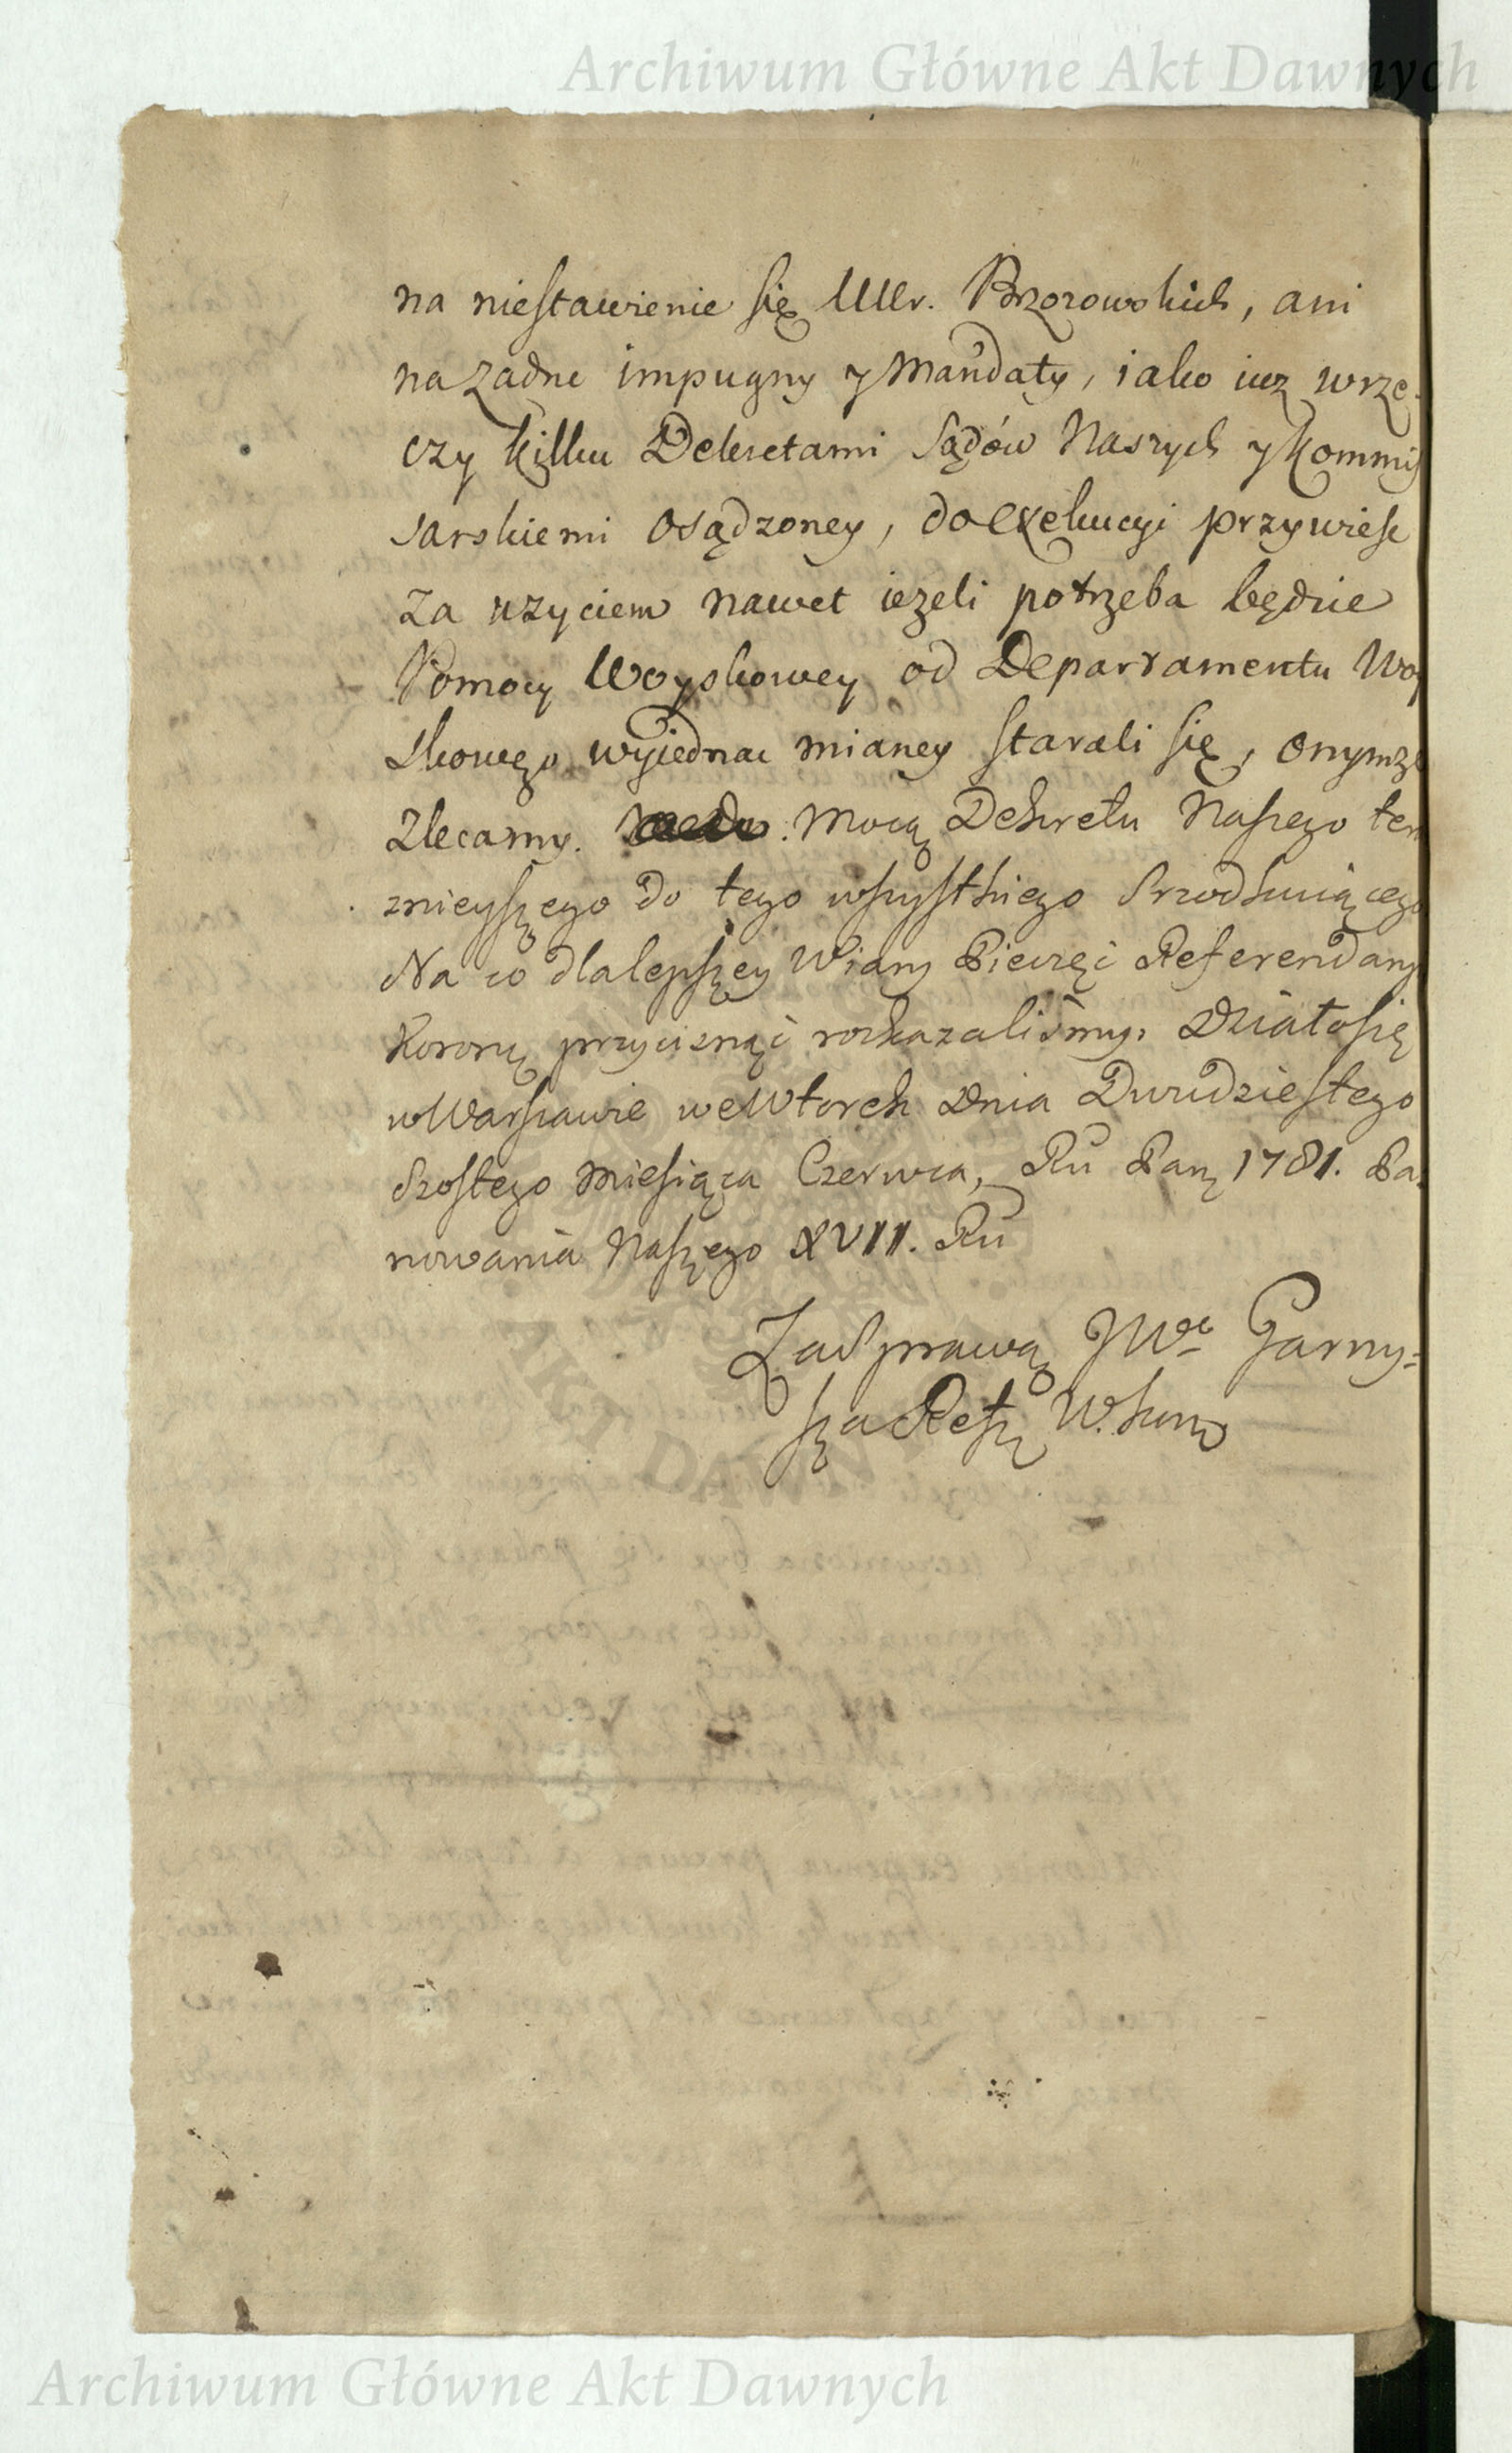 Archiwum Główne Akt Dawnych
na niestawienie się UUr. Brzozowskich, ani
na zadne impugny y Mandaty, iako iuz wrze-
czy kilku Dekretami Sądów Naszych y Kommis
sarskiemi osądzoney, do exekucyi przywiesc
za uzyciem nawet iezeli potrzeba będzie
Pomocy Woyskowey od Departamentu Woy
skowego wyiednac mianey starali się, onymze
Zlecamy. Mocą Dekretu Naszego ten
znieyszego do tego wszystkiego Srzodkuiącego
Na co dla lepszey Wiary Pieczęć Referendary
Koronną przycisnąć rozkazaliśmy. Działo się
w Warszawie we Wtorek Dnia Dwudziestego
Szostego Miesiąca Czerwca, Ru Pang 1781. Pa-
nowania Naszego XVII. Ru
Za Sprawą JWgo Garny-
sza Refrz W. Koro
AKT DAWN
Archiwum Główne Akt Dawnych